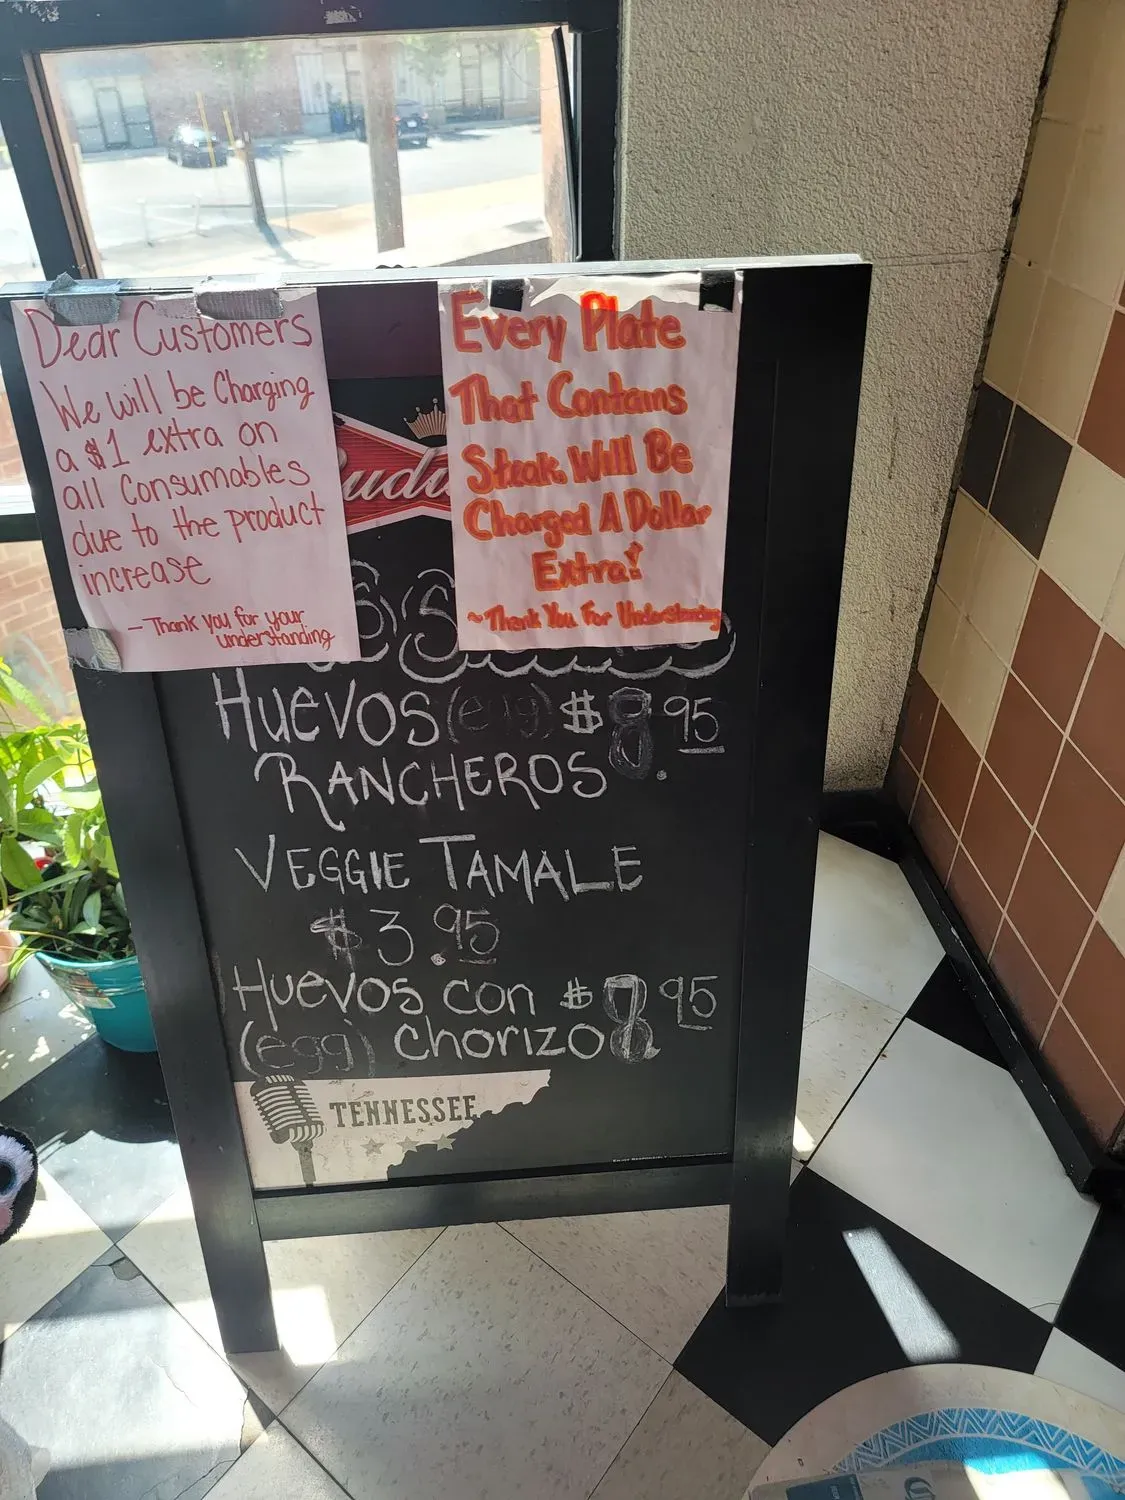 Dear Customers
We will be Charging
a $1 extra on
all Consumables
due to the product
increase
— Thank you for your
understanding
Every Plate
That Contains
Steak Will Be
Charged A Dollar
Extra!
~Thank You For Understanding
HUEVOS (egg) $8.95
RANCHEROS
VEGGIE TAMALE
$3.95
HUEVOS CON $ 95
(egg) CHORIZO
TENNESSEE